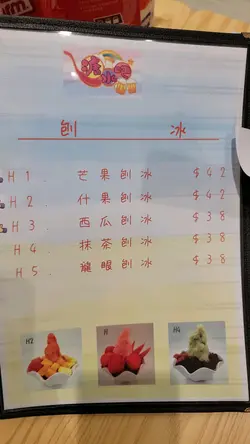 刨 冰
H1. 芒果刨冰 $42
H2. 什果刨冰 $42
H3. 西瓜刨冰 $38
H4. 抹茶刨冰 $38
H5. 龍眼刨冰 $38
H2 H H4